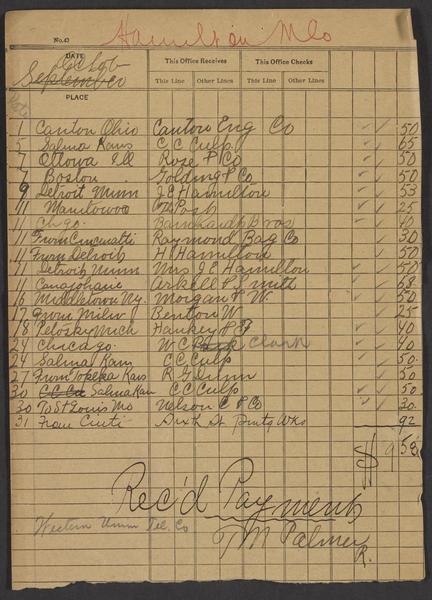 Hamilton Mlo
No. 42
DATE This Office Receives This Office Checks
September
This Line Other Lines This Line Other Lines
PLACE
1 Canton Ohio Canton Eng Co 50
5 Salina Kans C C Culp 65
7 Ottowa Ill Rose P Co 50
7 Boston Golding & Co 50
9 Detroit Minn J E Hamilton 53
11 Manitowoc Wm Post 25
11 Chgo. Barnhardt Bros 40
11 From Cincinatti Raymond Bag Co 30
11 From Detroit H Hamilton 50
11 Detroit Minn Mrs J E Hamilton 50
11 Canajoharie Arkell & Smith 68
16 Middletown Ny. Morgan & W. 50
17 From Milw Benton W 25
18 Petosky Mich 40
24 Chicago. W C Clark 40
24 Salina Kan C C Culp 50
27 From Topeka Kans R G 50
30 Salina Kan C C Culp 50
30 To St Louis Mo Nelson C & Co 30
31 From Cinti St Printg Wks 92
$ 9 58
Rec'd Payment
Western Union Tel. Co
T M Palmer
R.